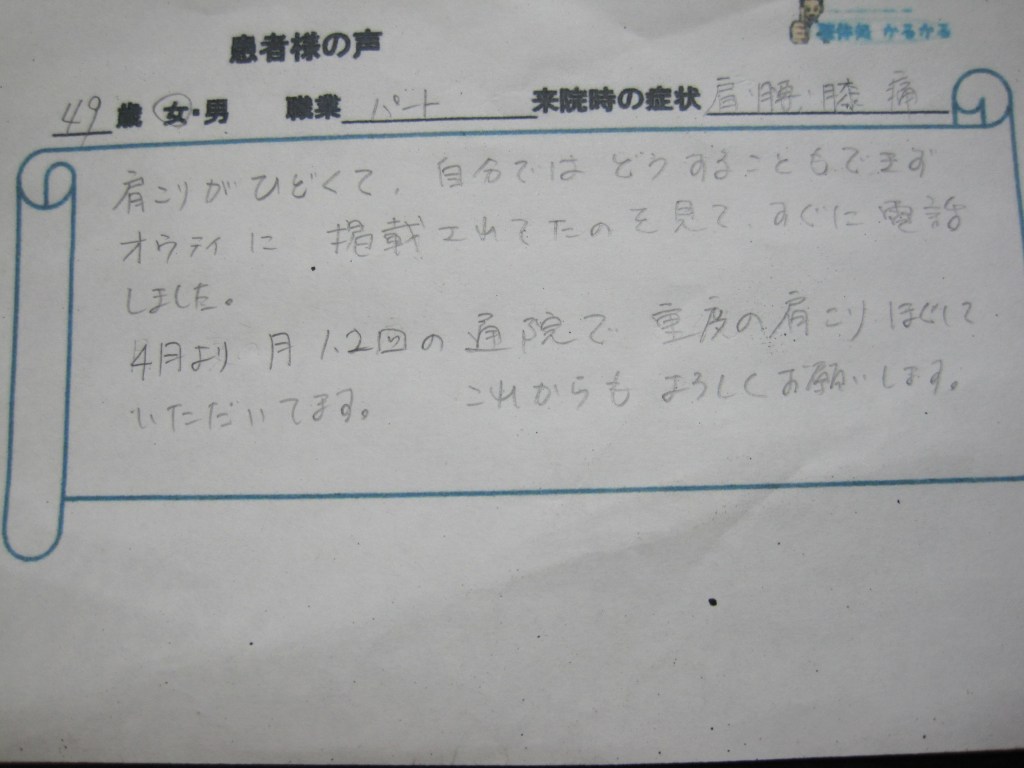 整体処 かるかる
患者様の声
49歳 女・男 職業 パート 来院時の症状 肩・腰・膝 痛
肩こりがひどくて、自分ではどうすることもできず
オウティに 掲載されてたのを見て、すぐに電話
しました。
4月より 月1.2回の通院で 重度の肩こりほぐして
いただいてます。 これからもよろしくお願いします。